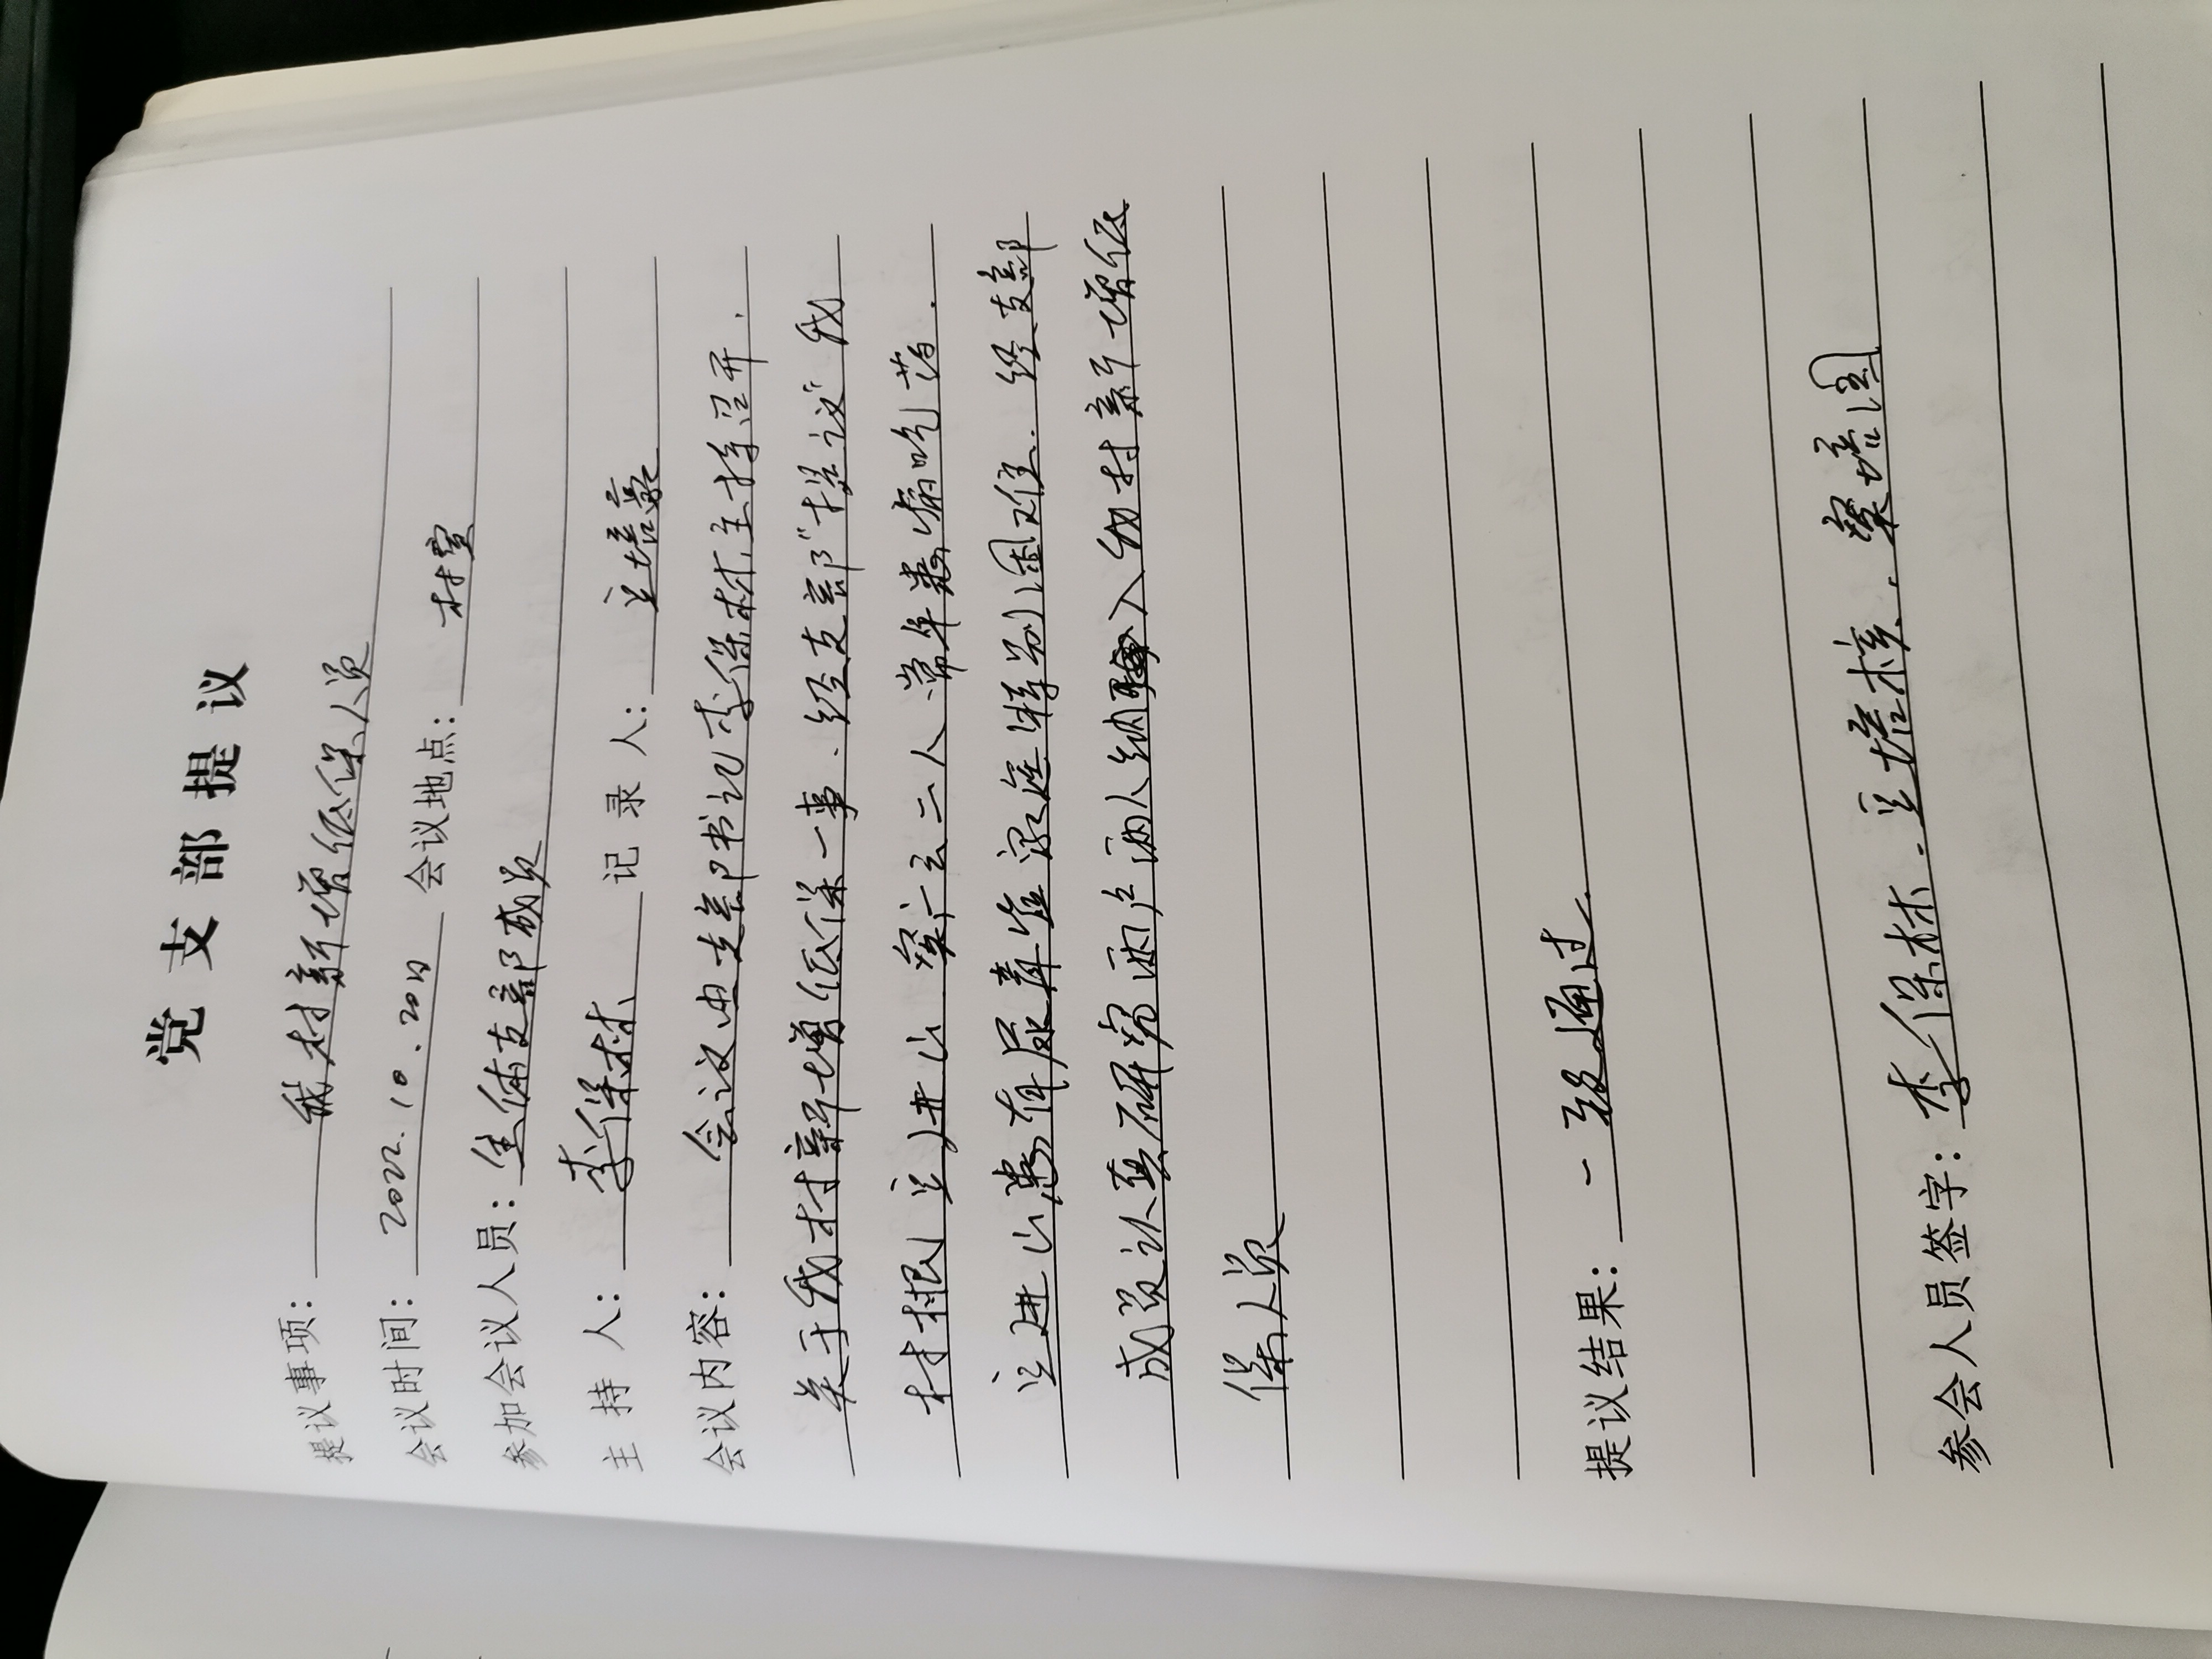 党支部提议
提议事项: 我村新增低保人员
会议时间: 2022.10.20日 会议地点: 村室
参加会议人员: 全体支部成员
主持人: 李保林 记录人: 豆培亮
会议内容: 会议由支部书记李保林主持召开.
关于我村新增低保一事.经支部"提议"我
村村民豆进山 窦广云二人常年患病吃药.
豆进山患有尿毒症家庭特别困难.经支部
成员认真研究两户两人纳入我村新增低
保人员
提议结果: 一致通过.
参会人员签字: 李保林.豆培核.窦培国